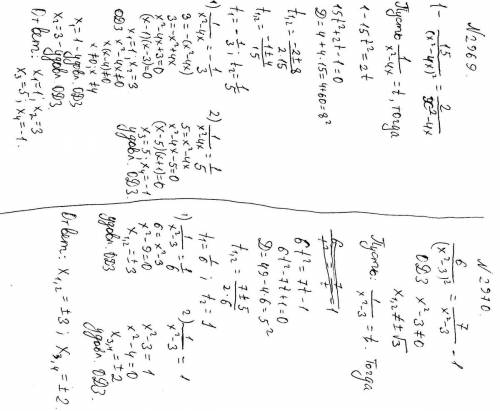 N 2969.
1 - 15/(x²-4x)² = 2/(x²-4x)
Пусть 1/(x²-4x) = t, тогда
1 - 15t² = 2t
15t² + 2t - 1 = 0
D = 4 + 4·15 = 4+60 = 8²
t₁,₂ = (-2±8)/(2·15)
t₁,₂ = (-1±4)/15
t₁ = -1/3; t₂ = 1/5
1) 1/(x²-4x) = -1/3
3 = -(x²-4x)
3 = -x²+4x
x²-4x+3=0
(x-1)(x-3)=0
x₁=1; x₂=3
ОДЗ x²-4x≠0
x(x-4)≠0
x≠0; x≠4
x=1 - удовл. ОДЗ
x₂=3 - удовл. ОДЗ
2) 1/(x²-4x) = 1/5
5 = x²-4x
x²-4x-5=0
(x-5)(x+1)=0
x₃=5; x₄=-1
удовл. ОДЗ.
Ответ: x₁=1; x₂=3
x₃=5; x₄=-1.
N 2970.
6/(x²-3)² = 7/(x²-3) - 1
ОДЗ x²-3≠0
x₁,₂≠±√3
Пусть: 1/(x²-3) = t. Тогда
6t² = 7t - 1
6t² - 7t + 1 = 0
D = 49 - 4·6 = 5²
t₁,₂ = (7±5)/(2·6)
t₁ = 1/6; t₂ = 1
1) 1/(x²-3) = 1/6
6 = x²-3
x²-9=0
x₁,₂ = ±3
удовл ОДЗ
2) 1/(x²-3) = 1
x²-3 = 1
x²-4=0
x₃,₄ = ±2
удовл. ОДЗ.
Ответ: x₁,₂ = ±3; x₃,₄ = ±2.